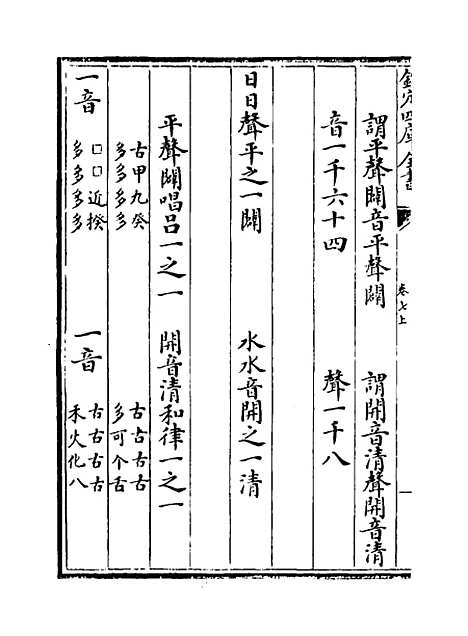 欽定四庫全書 卷七上 一
謂平聲闢音平聲闢 謂開音清聲開音清
音一千六十四 聲一千八
日日聲平之一闢 水水音開之一清
平聲闢唱呂一之一 開音清和律一之一
古甲九癸 古古古古
多多多多 多可个舌
一音 □□近揆 一音 古古古古
多多多多 禾火化八